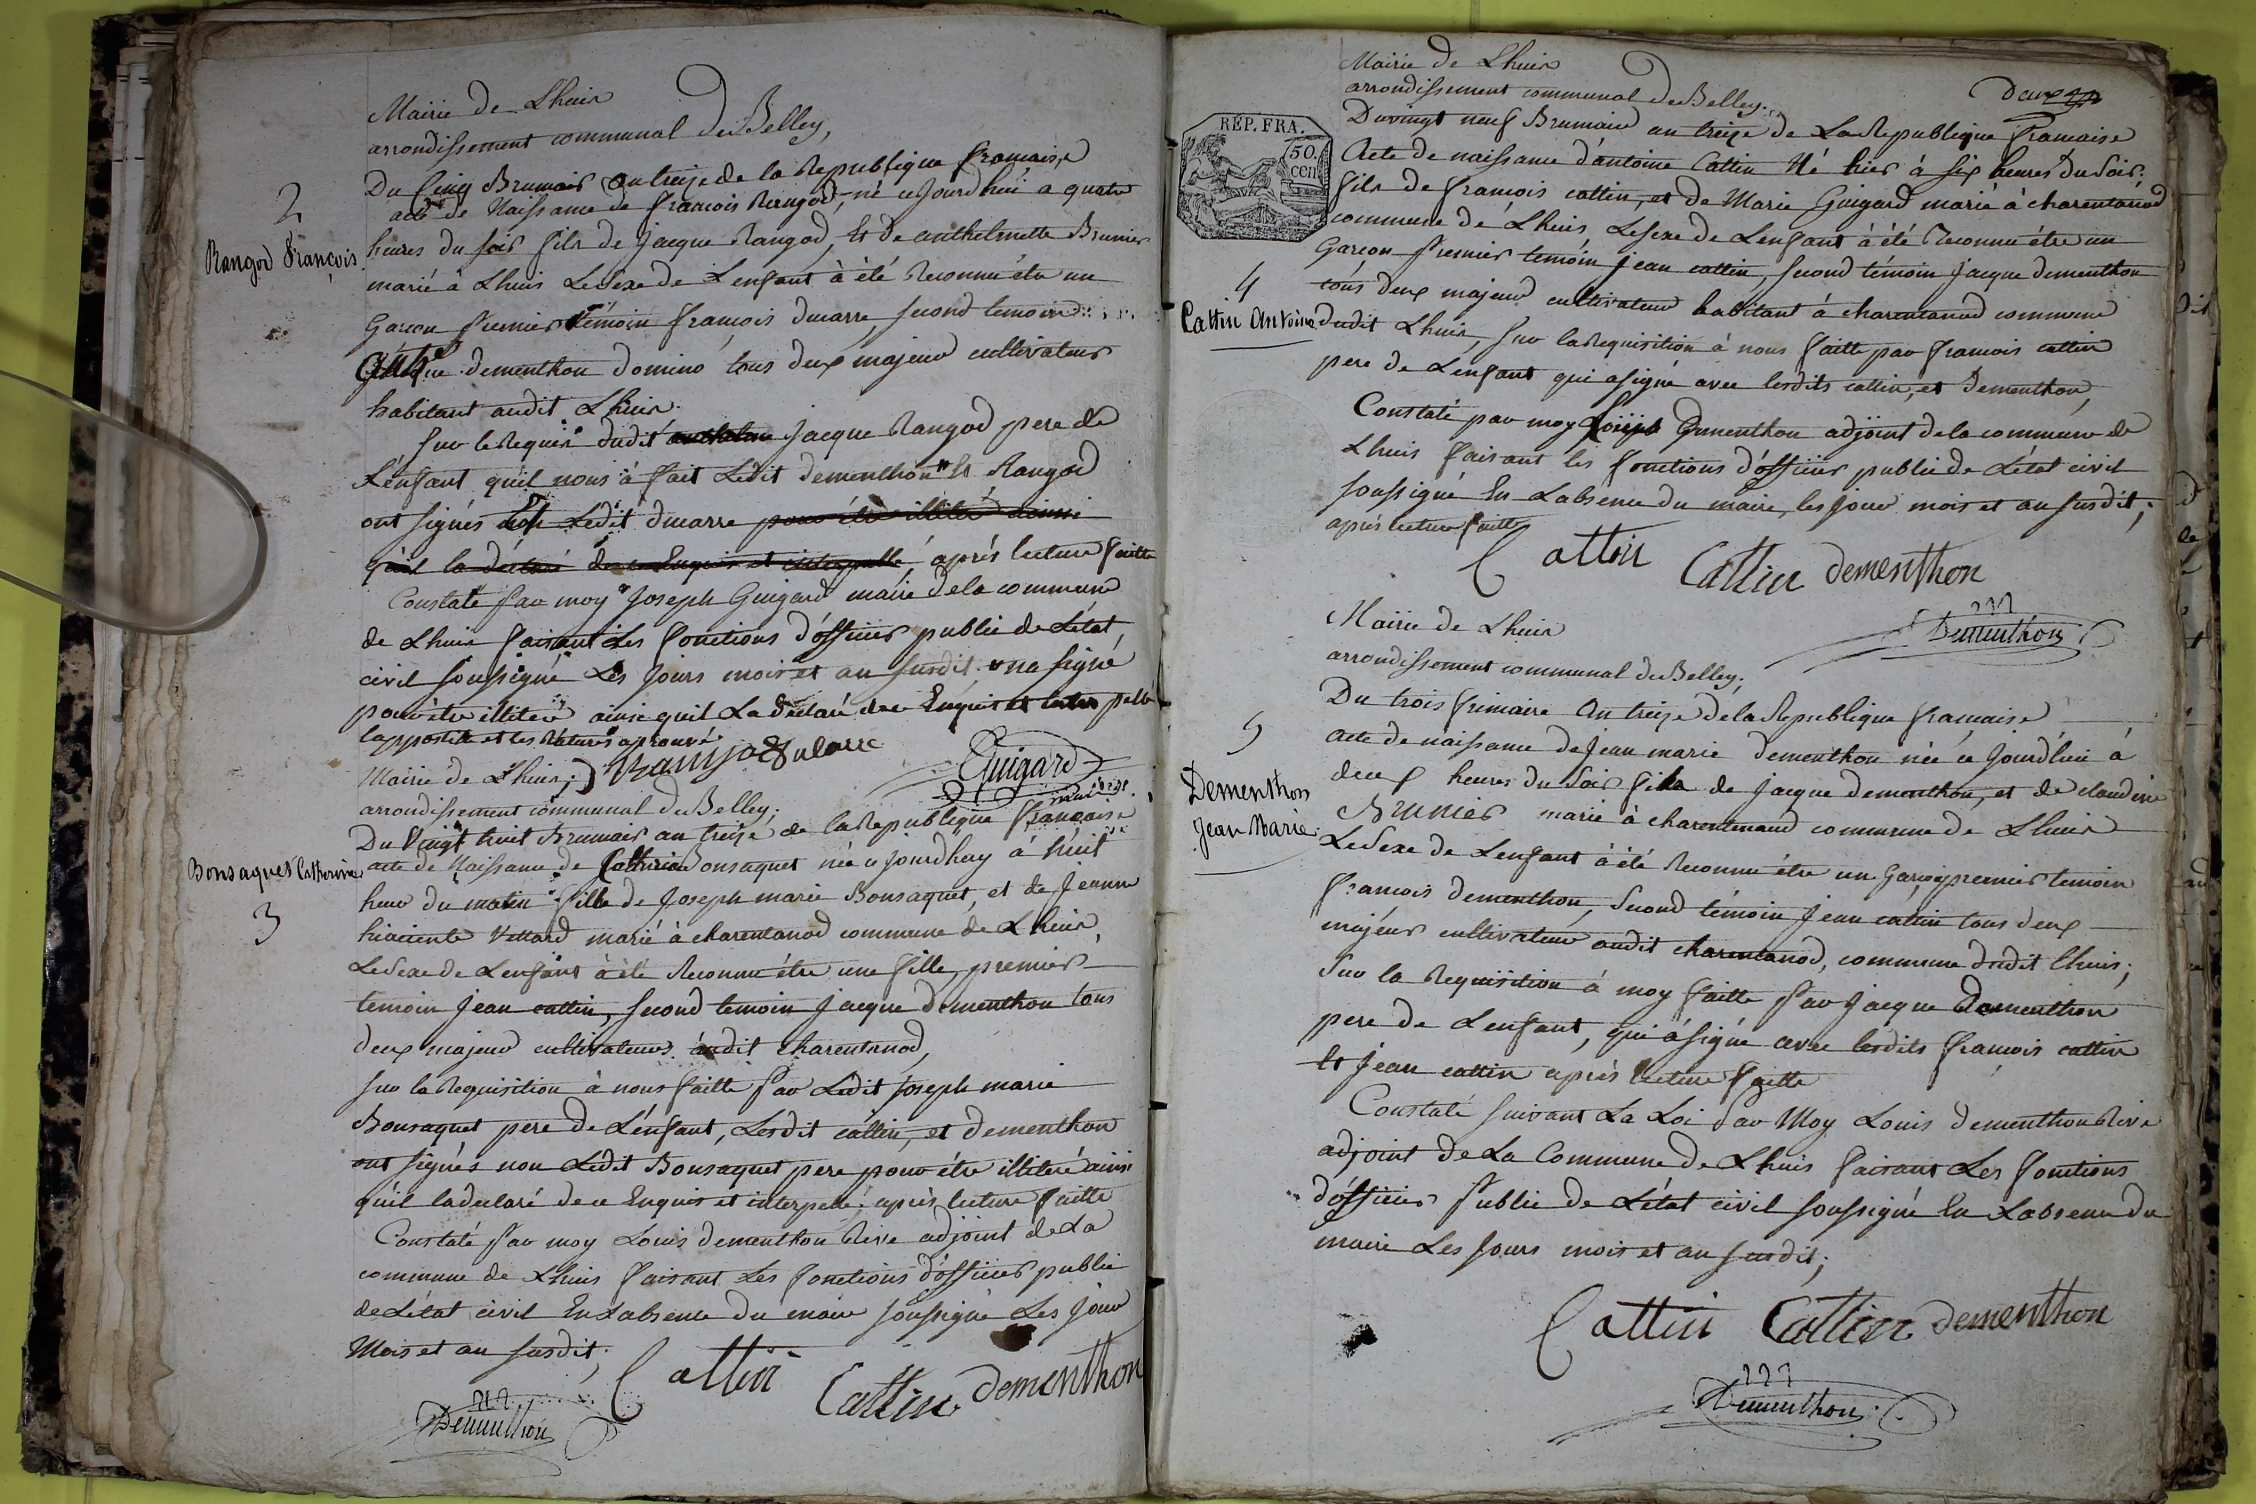 Mairie de Lhuis
arrondissement communal de Belley,
2
Rangod François
Du Cinq Brumair an treize de la Republique française
acte de Naissance de francois Rangod, né ce Jourdhui a quatre
heures du soir fils de Jacque Rangod, Et de anthelmette Brunier
marié à Lhuis Le Sexe de L'enfant à été Reconnu étre un
Garcon premier témoin francois ducarre, second temoin
dementhon domino tous deux majeur cultivateurs
habitant audit Lhuis.
sur le Requis dudit Jacque Rangod pere de
L'enfant quil nous à fait Ledit dementhon Et Rangod
ont signés non Ledit ducarre pour étre illitéré ainsi
quil la déclaré de ce Enquis et interpellé, aprés lecture faitte
Constaté par moy Joseph Guigard maire de la commune
de Lhuis faisant Les fonctions d'officier public de L'état
civil soussigné Les Jours mois et an susdit. na signé
pour étre illiteré ainsi quil La déclaré de ce Enquis et interpellé
lappostille et les Ratures aprouvé
Guigard
maire
Mairie de Lhuis;
arrondissement communal de Belley;
Bonsaquet Catherine
3
Du Vingt huit Brumair an treize de la Republique française
acte de Naissance de Catherine Bonsaquet née ce Jourdhuy à huit
heur du matin fille de Joseph marie Bonsaquet, et de Jeanne
hiacinte Vettard marié à charentanod commune de Lhuis,
Le Sexe de L'enfant à été Reconnu étre une fille, premier
temoin Jean cattin, second temoin Jacque dementhon tous
deux majeur cultivateurs audit charentanod,
sur la Requisition à nous faitte par Ledit Joseph marie
Bonsaquet pere de L'enfant, Lesdit cattin, et dementhon
ont signés non Ledit Bonsaquet pere pour étre illiteré ainsi
quil la declaré de ce Enquis et interpellé; après lecture faitte
Constaté par moy Louis dementhon Rive adjoint de La
commune de Lhuis faisant Les fonctions d'officier public
de L'état civil En Labsence du maire soussigné Les Jour
Mois et an susdit;
Cattin Cattin dementhon
Dementhon
Mairie de Lhuis
arrondissement communal de Belley.
deux
RÉP. FRA.
50.
cen
Du vingt neuf Brumaire an treize de La Republique francaise
Acte de naissance d'antoine Cattin Né hier à six heures du Soir.
fils de francois cattin, et de Marie Guigard marié à charentanod
commune de Lhuis Le sexe de L'enfant à été Reconnu étre un
Garcon premier temoin Jean cattin, second témoin Jacque dementhon
4
Cattin Antoine
tous deux majeur cultivateur habitant à charentanod commune
dudit Lhuis, sur la Requisition à nous faitte par francois cattin
pere de L'enfant qui a signé avec lesdits cattin, et dementhon,
Constaté par moy Dementhon adjoint de la commune de
Lhuis faisant les fonctions d'officier public de L'état civil
soussigné En Labsence du maire, les Jour mois et an susdit;
après lecture faitte
Cattin Cattin dementhon
Dementhon
Mairie de Lhuis
arrondissement communal de Belley;
5
Dementhon
Jean Marie.
Du trois frimaire An treize de la Republique française
acte de naissance de Jean marie dementhon née ce Jourd'hui à
deux heures du Soir fils de Jacque dementhon, et de claudine
Brunier marié à charentenaud commune de Lhuis
Le Sexe de L'enfant à été Reconnu étre un Garçon premier temoin
francois dementhon, second témoin Jean cattin tous deux
majeur cultivateur audit charentanod, commune dudit Lhuis;
Sur la Requisition à moy faitte par Jacque Dementhon
pere de L'enfant, qui à signé avec lesdits francois cattin
Et Jean cattin après Lecture faitte
Constaté suivant La Loi par Moy Louis dementhon Rive
adjoint de La Commune de Lhuis faisant Les fonctions
d'officier public de L'état civil soussigné En Labsence du
maire Les Jours mois et an susdit;
Cattin Cattin dementhon
Dementhon